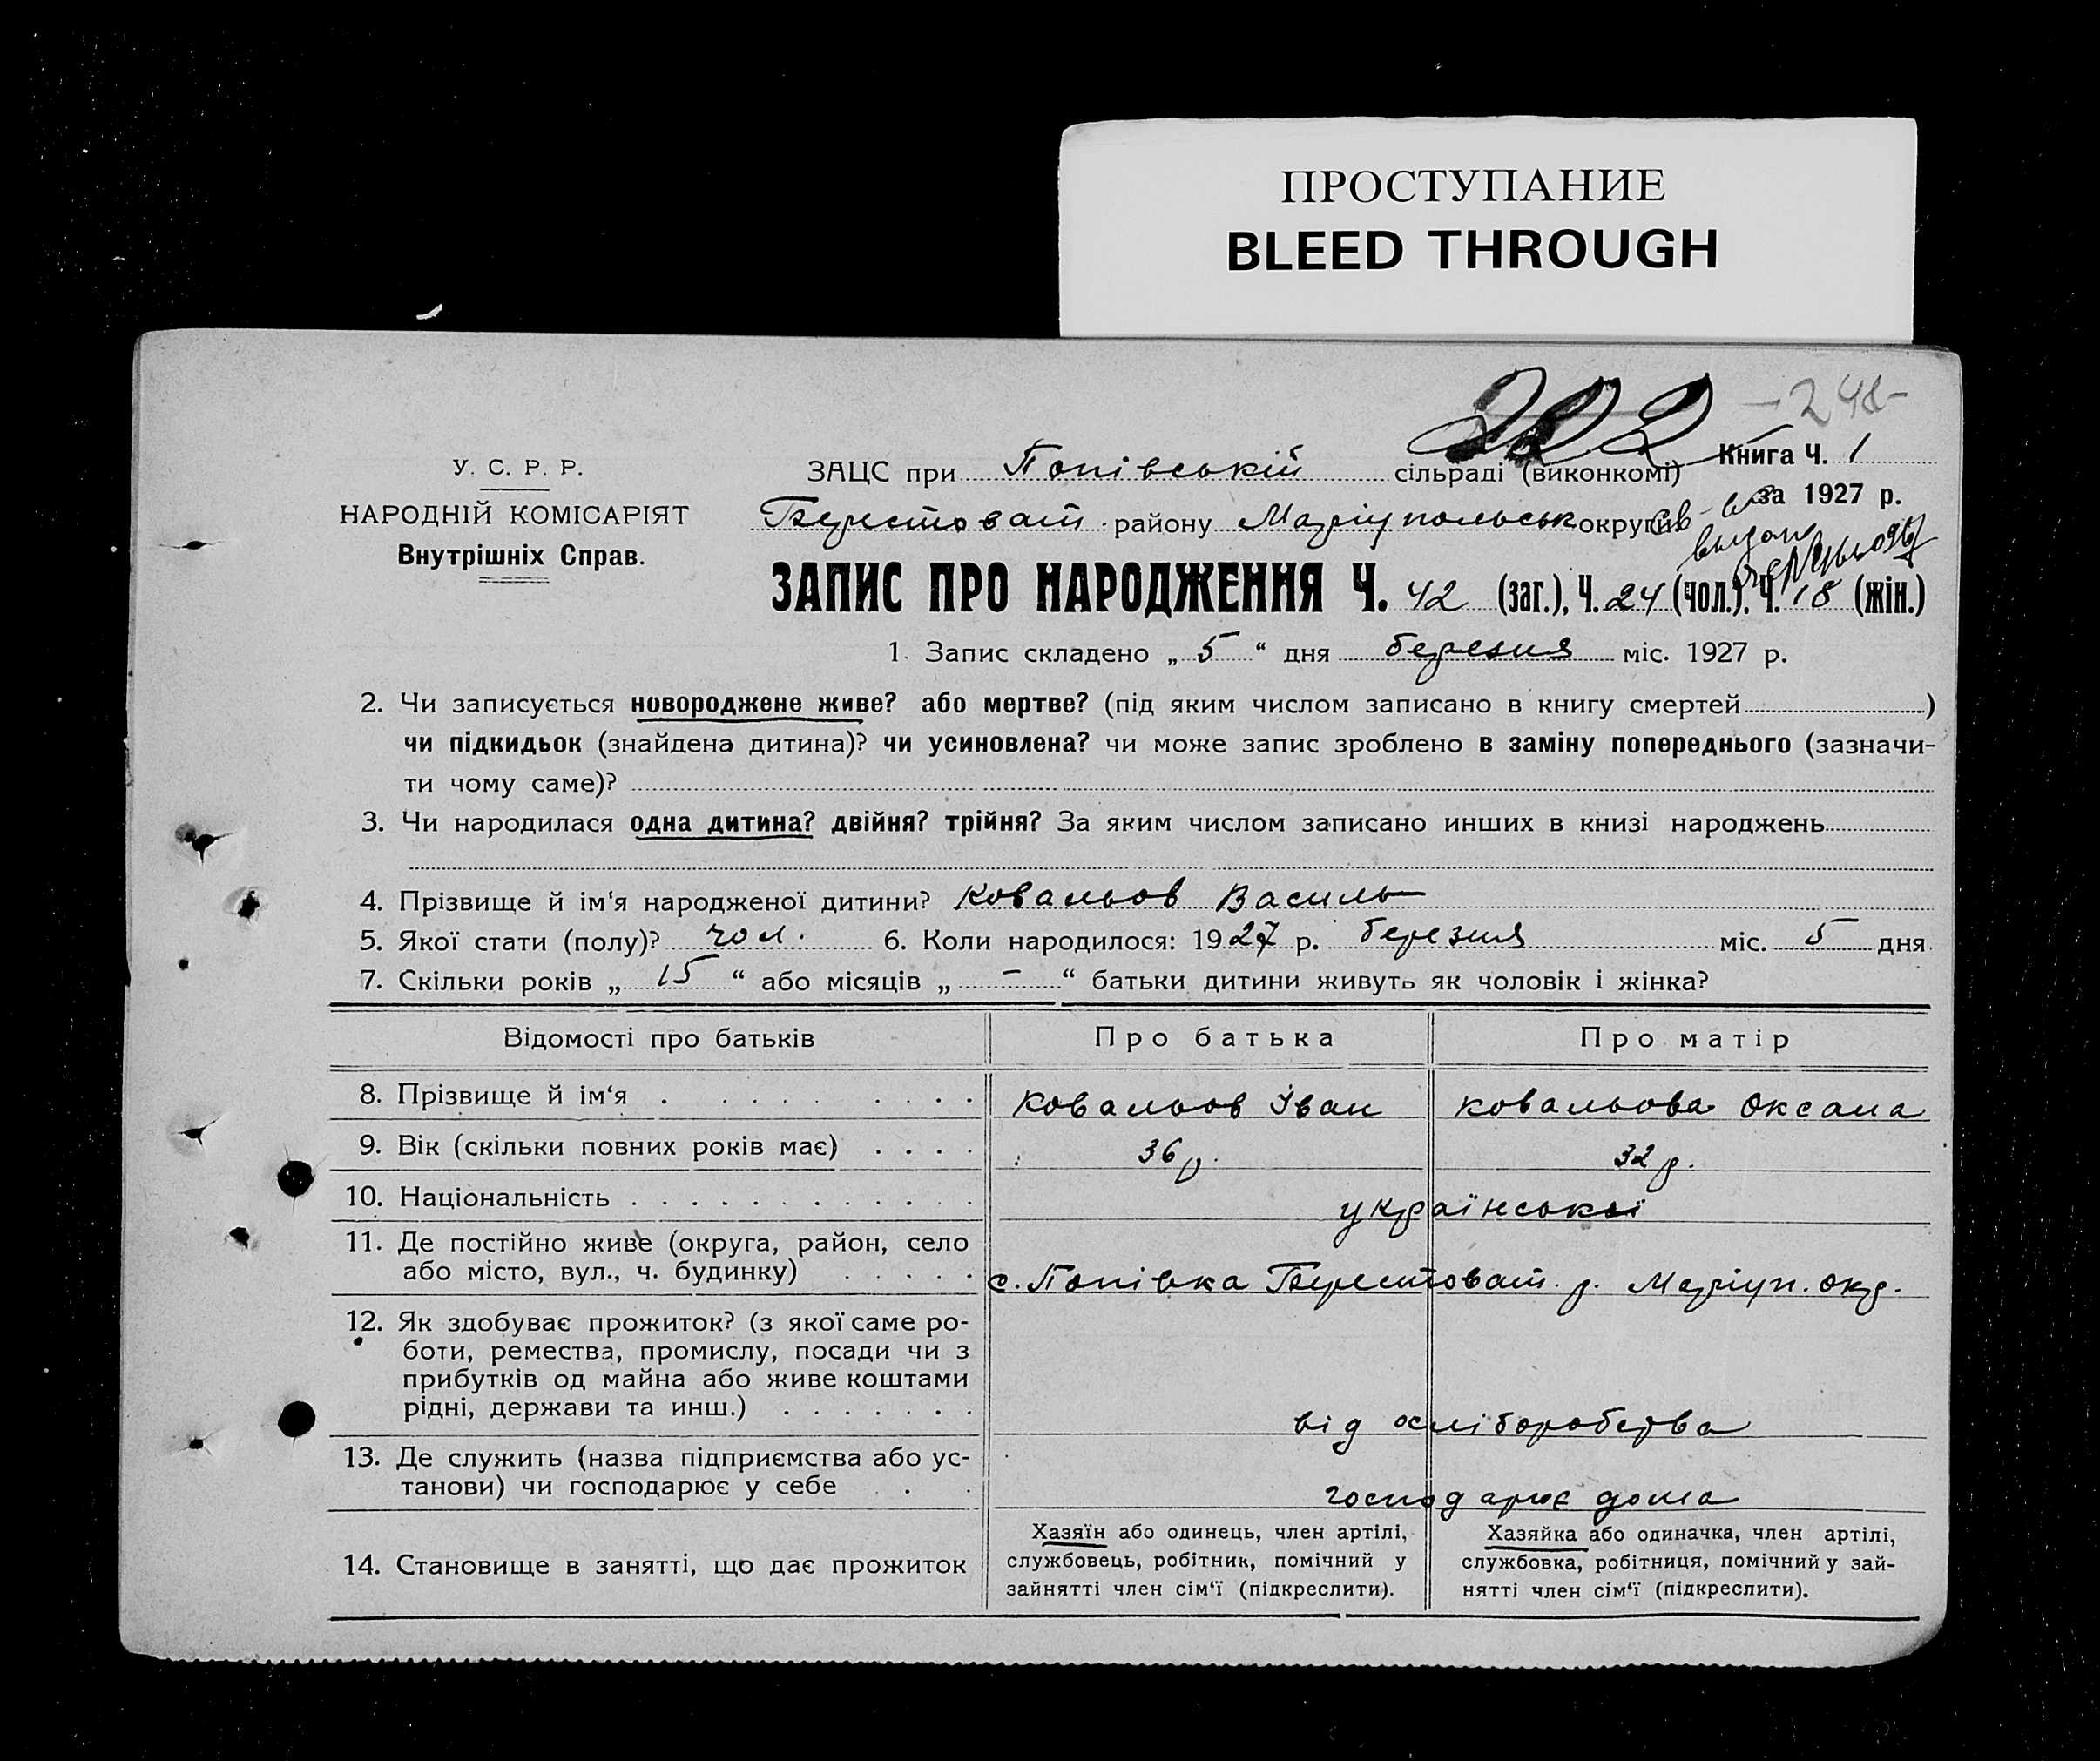 ПРОСТУПАНИЕ
BLEED THROUGH
222 -248-
У. С. Р. Р.
НАРОДНІЙ КОМІСАРІЯТ
Внутрішніх Справ.
ЗАЦС при Попівській сільраді (виконкомі) Книга Ч. 1
за 1927 р.
Берестоват. району Маріупольськ округи
ЗАПИС ПРО НАРОДЖЕННЯ Ч. 42 (заг.), Ч. 24 (чол.). Ч. 18 (жін.)
1. Запис складено „ 5 “ дня березня міс. 1927 р.
2. Чи записується новороджене живе? або мертве? (під яким числом записано в книгу смертей )
чи підкидьок (знайдена дитина)? чи усиновлена? чи може запис зроблено в заміну попереднього (зазначи-
ти чому саме)?
3. Чи народилася одна дитина? двійня? трійня? За яким числом записано инших в книзі народжень
4. Прізвище й ім‘я народженої дитини? Ковальов Василь
5. Якої стати (полу)? чол. 6. Коли народилося: 1927 р. березня міс. 5 дня
7. Скільки років „ 15 “ або місяців „ – “ батьки дитини живуть як чоловік і жінка?
Відомості про батьків Про батька Про матір
8. Прізвище й ім‘я Ковальов Іван Ковальова Оксана
9. Вік (скільки повних років має) 36 р. 32 р.
10. Національність українські
11. Де постійно живе (округа, район, село
або місто, вул., ч. будинку) с. Попівка Берестоват. р. Маріуп. окр.
12. Як здобуває прожиток? (з якої саме ро-
боти, ремества, промислу, посади чи з
прибутків од майна або живе коштами
рідні, держави та инш.) від хліборобства
13. Де служить (назва підприємства або ус-
танови) чи господарює у себе господарює дома
14. Становище в занятті, що дає прожиток
Хазяїн або одинець, член артілі,
службовець, робітник, помічний у
зайнятті член сім‘ї (підкреслити).
Хазяйка або одиначка, член артілі,
службовка, робітниця, помічний у зай-
нятті член сім‘ї (підкреслити).